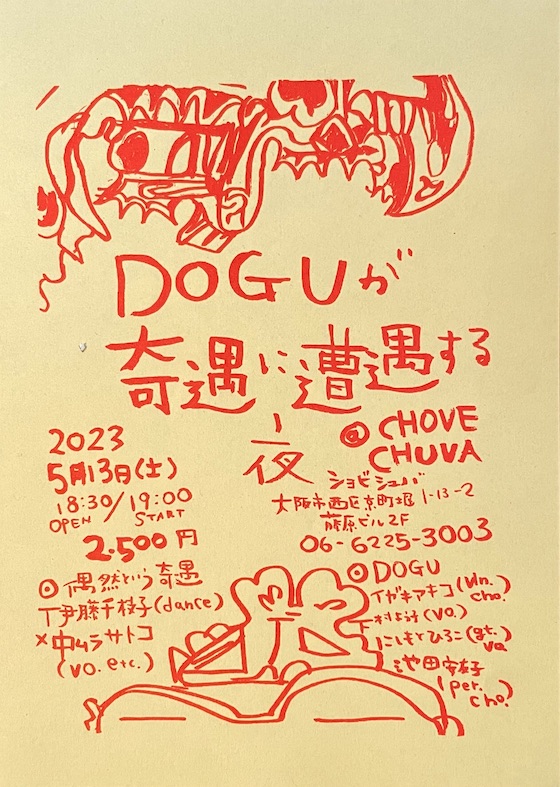 DOGUが
奇遇に遭遇する
一夜
@ CHOVE
CHUVA
ショビシュバ
大阪市西区京町堀 1-13-2
藤原ビル2F
06-6225-3003
2023
5月13日(土)
18:30/19:00
OPEN START
2.500円
◎偶然という奇遇
伊藤千枝子(dance)
×中ムラサトコ
(vo. etc.)
◎DOGU
イガキアキコ(vln. cho.)
下村よう子(vo.)
にしもとひろこ(gt. vo.)
池田安友子
(per. cho.)